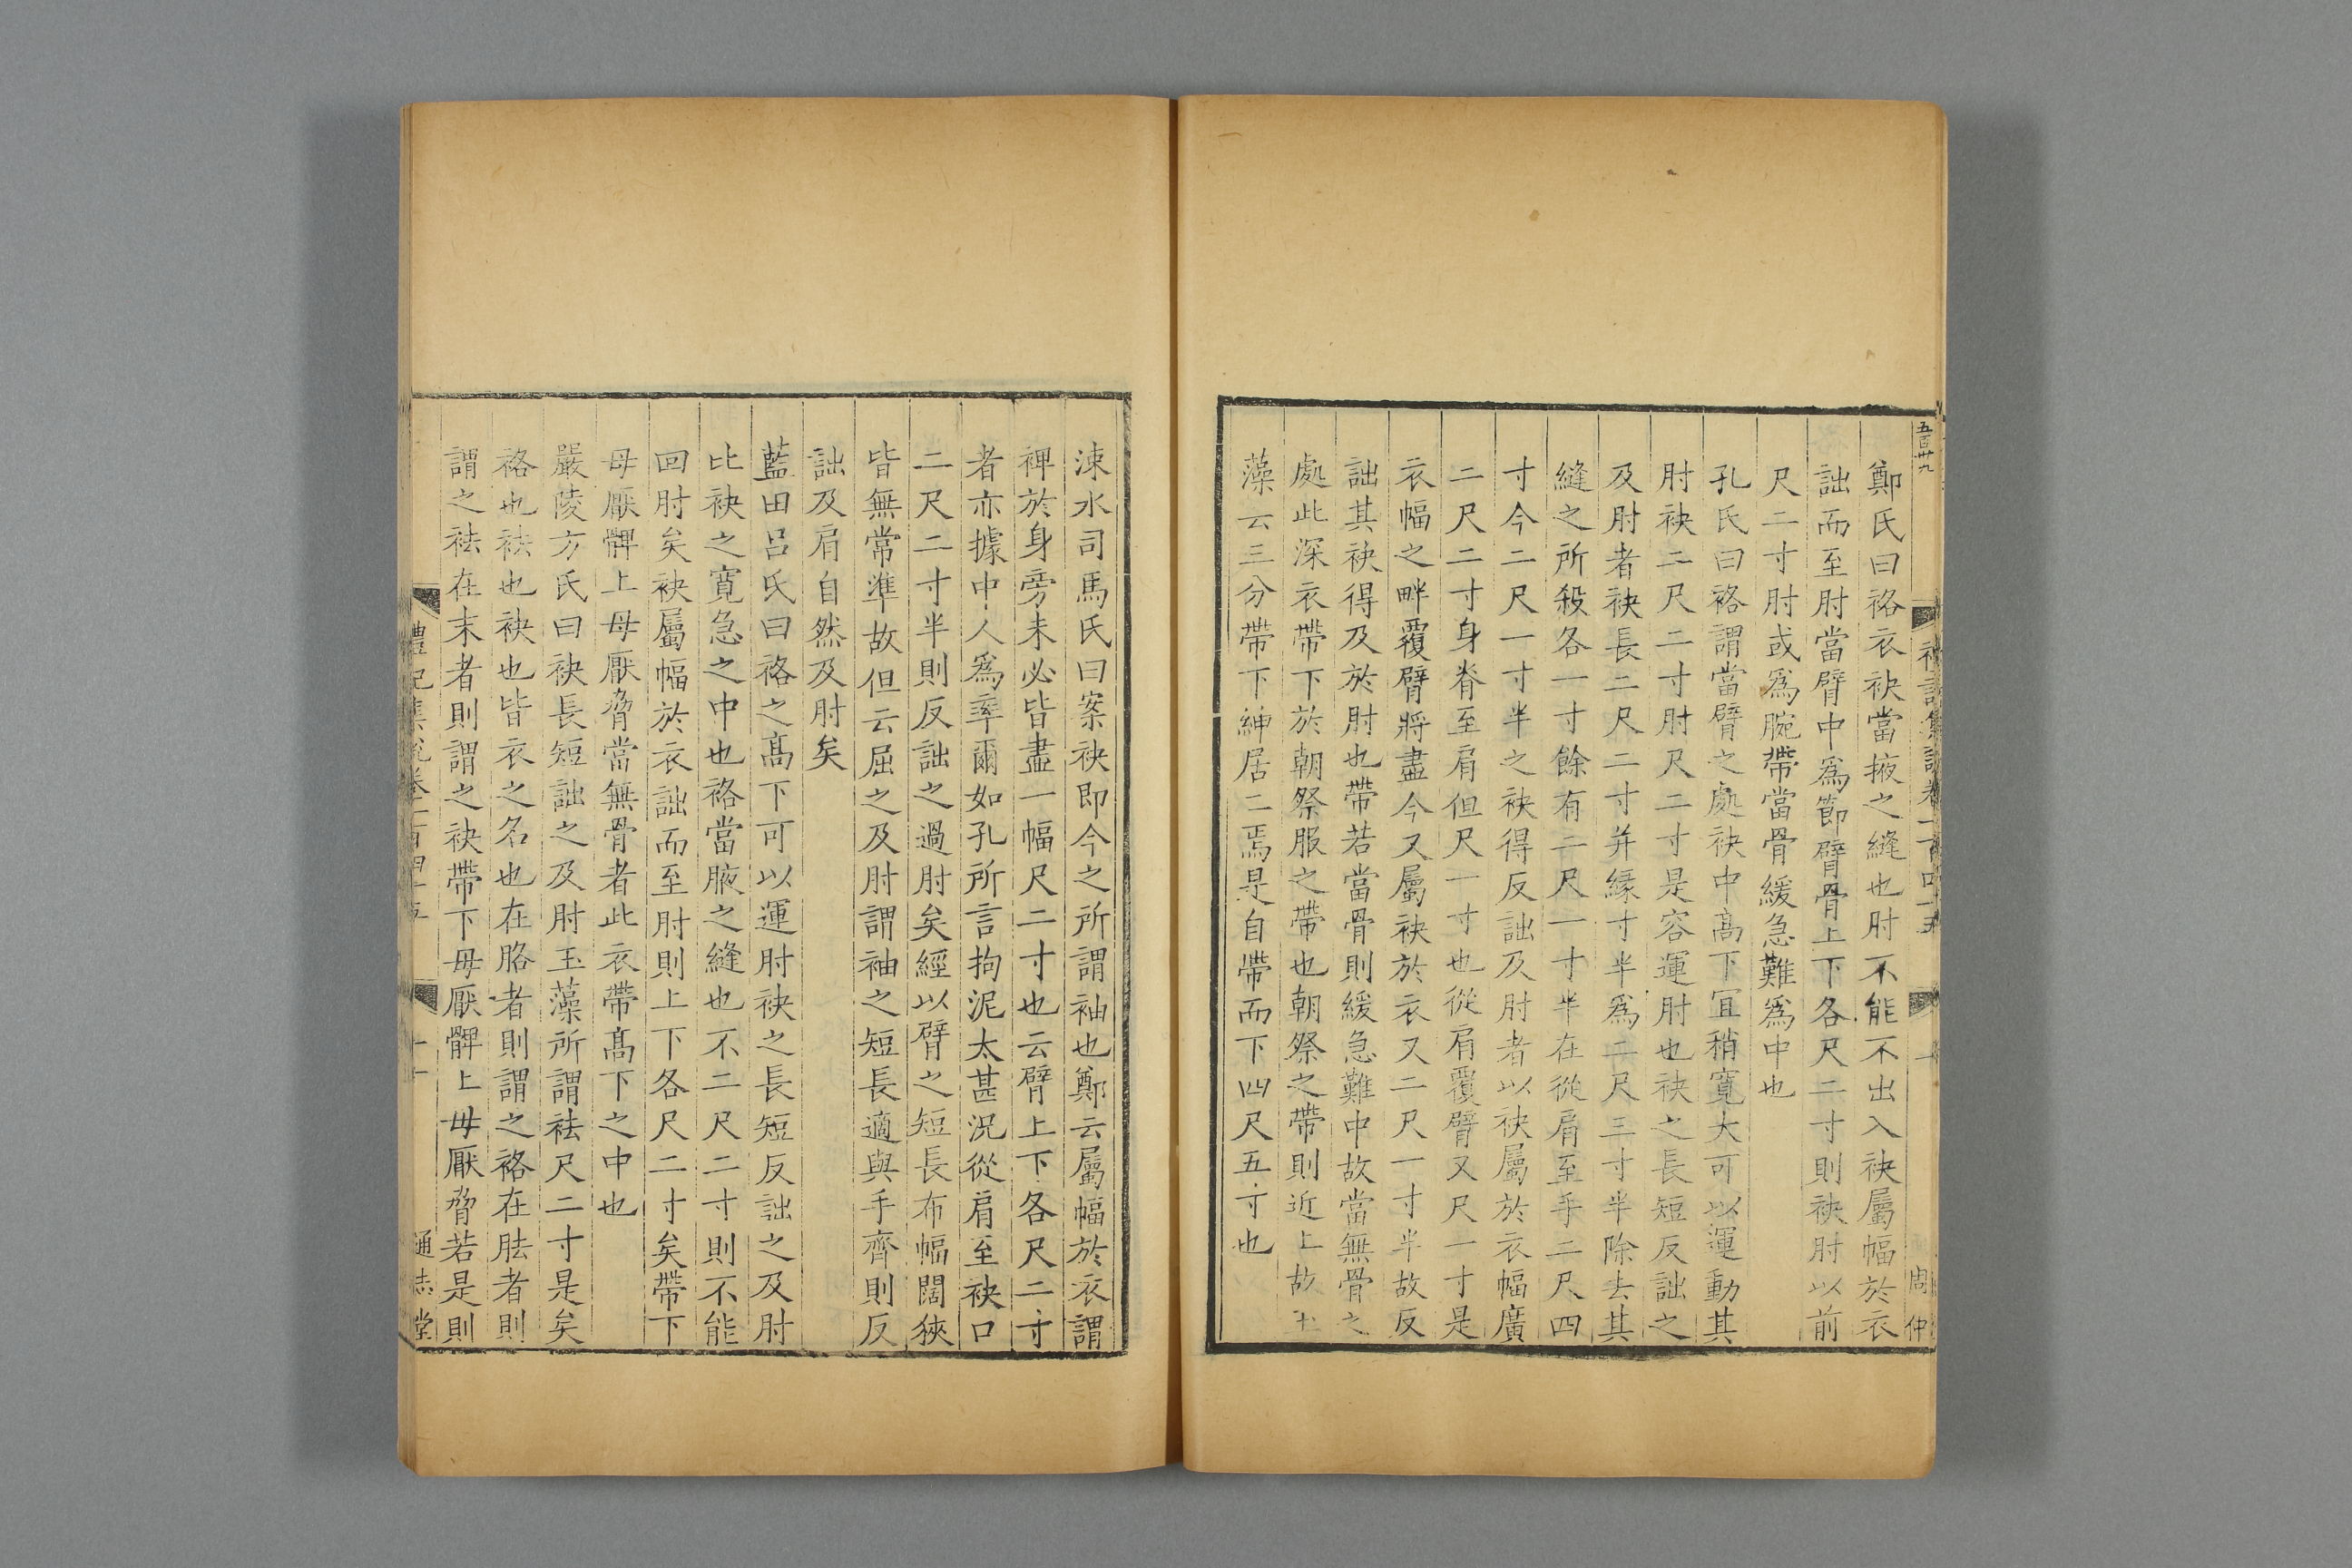 五百卅九
禮記集說卷一百四十五
十
周仲
鄭氏曰袼衣袂當掖之縫也肘不能不出入袂屬幅於衣
詘而至肘當臂中爲節臂骨上下各尺二寸則袂肘以前
尺二寸肘或爲腕帶當骨緩急難爲中也
孔氏曰袼謂當臂之處袂中髙下宜稍寛大可以運動其
肘袂二尺二寸肘尺二寸是容運肘也袂之長短反詘之
及肘者袂長二尺二寸并縁寸半爲二尺三寸半除去其
縫之所殺各一寸餘有二尺一寸半在從肩至手二尺四
寸今二尺一寸半之袂得反詘及肘者以袂屬於衣幅廣
二尺二寸身脊至肩但尺一寸也從肩覆臂又尺一寸是
衣幅之畔覆臂將盡今又屬袂於衣又二尺一寸半故反
詘其袂得及於肘也帶若當骨則緩急難中故當無骨之
處此深衣帶下於朝祭服之帶也朝祭之帶則近上故玉
藻云三分帶下紳居二焉是自帶而下四尺五寸也
涑水司馬氏曰案袂即今之所謂袖也鄭云屬幅於衣謂
裨於身旁未必皆盡一幅尺二寸也云臂上下各尺二寸
者亦據中人爲率爾如孔所言拘泥太甚况從肩至袂口
二尺二寸半則反詘之過肘矣經以臂之短長布幅闊狹
皆無常準故但云屈之及肘謂袖之短長適與手齊則反
詘及肩自然及肘矣
藍田呂氏曰袼之髙下可以運肘袂之長短反詘之及肘
比袂之寛急之中也袼當腋之縫也不二尺二寸則不能
回肘矣袂屬幅於衣詘而至肘則上下各尺二寸矣帶下
毋厭髀上毋厭脅當無骨者此衣帶髙下之中也
嚴陵方氏曰袂長短詘之及肘玉藻所謂袪尺二寸是矣
袼也袪也袂也皆衣之名也在胳者則謂之袼在胠者則
謂之袪在末者則謂之袂帶下毋厭髀上毋厭脅若是則
禮記集說卷一百四十五
十一
通志堂